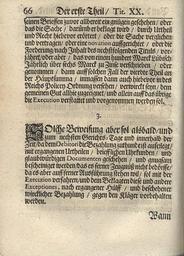 66 Der erste Theil / Tit. XX.
seinen Brieffen zuvor allbereit ein gnügen geschehen / oder
das die Sache / darümb er beklagt wird / durch Urtheil
und Recht biebevor erörtert / oder die Sache verziehen
und vertragen / oder eine novation auffgerichtet / oder die
Forderung nach Inhalt des nachfolgenden Tituls / ver-
jähret / oder aber / das von einem hundert Marck Lübisch
Jährlich über sechs Marck zu Zinse verschrieben / oder
genommen / dann auff solchen Fall der vierdte Theil am
der Häuptsumma / immassen dann auch hiebevor wieder
Reichs Policey-Ordnung versehen / verwircket seyn / dem
gemeinen Gut allhie zugekant / und allein auff das übrige
die Execution verstattet und vorgenommen werden sol.
3.
SOlche Beweisung aber sol alsbald / und
zum nechsten Gerichts-Tage und innerhalb der
Zeit / da dem Debitori die Bezahlung zuthun ist aufferlegt /
mit ergangenen Urtheilen / brieflichen Urkunden / und
glaubwürdigen Documenten geschehen / und gnugsam
bescheiniget werden / das es ferner Zeugnis nicht bedörffe /
da es aber auff ferner Ausführung stehen wil / sol mit der
Execution verfahren / und dem Beklagten diese und andere
Exceptiones, nach ergangener Hülff / und beschehener
wircklicher Bezahlung / gegen den Kläger vorbehalten
werden.
Wann